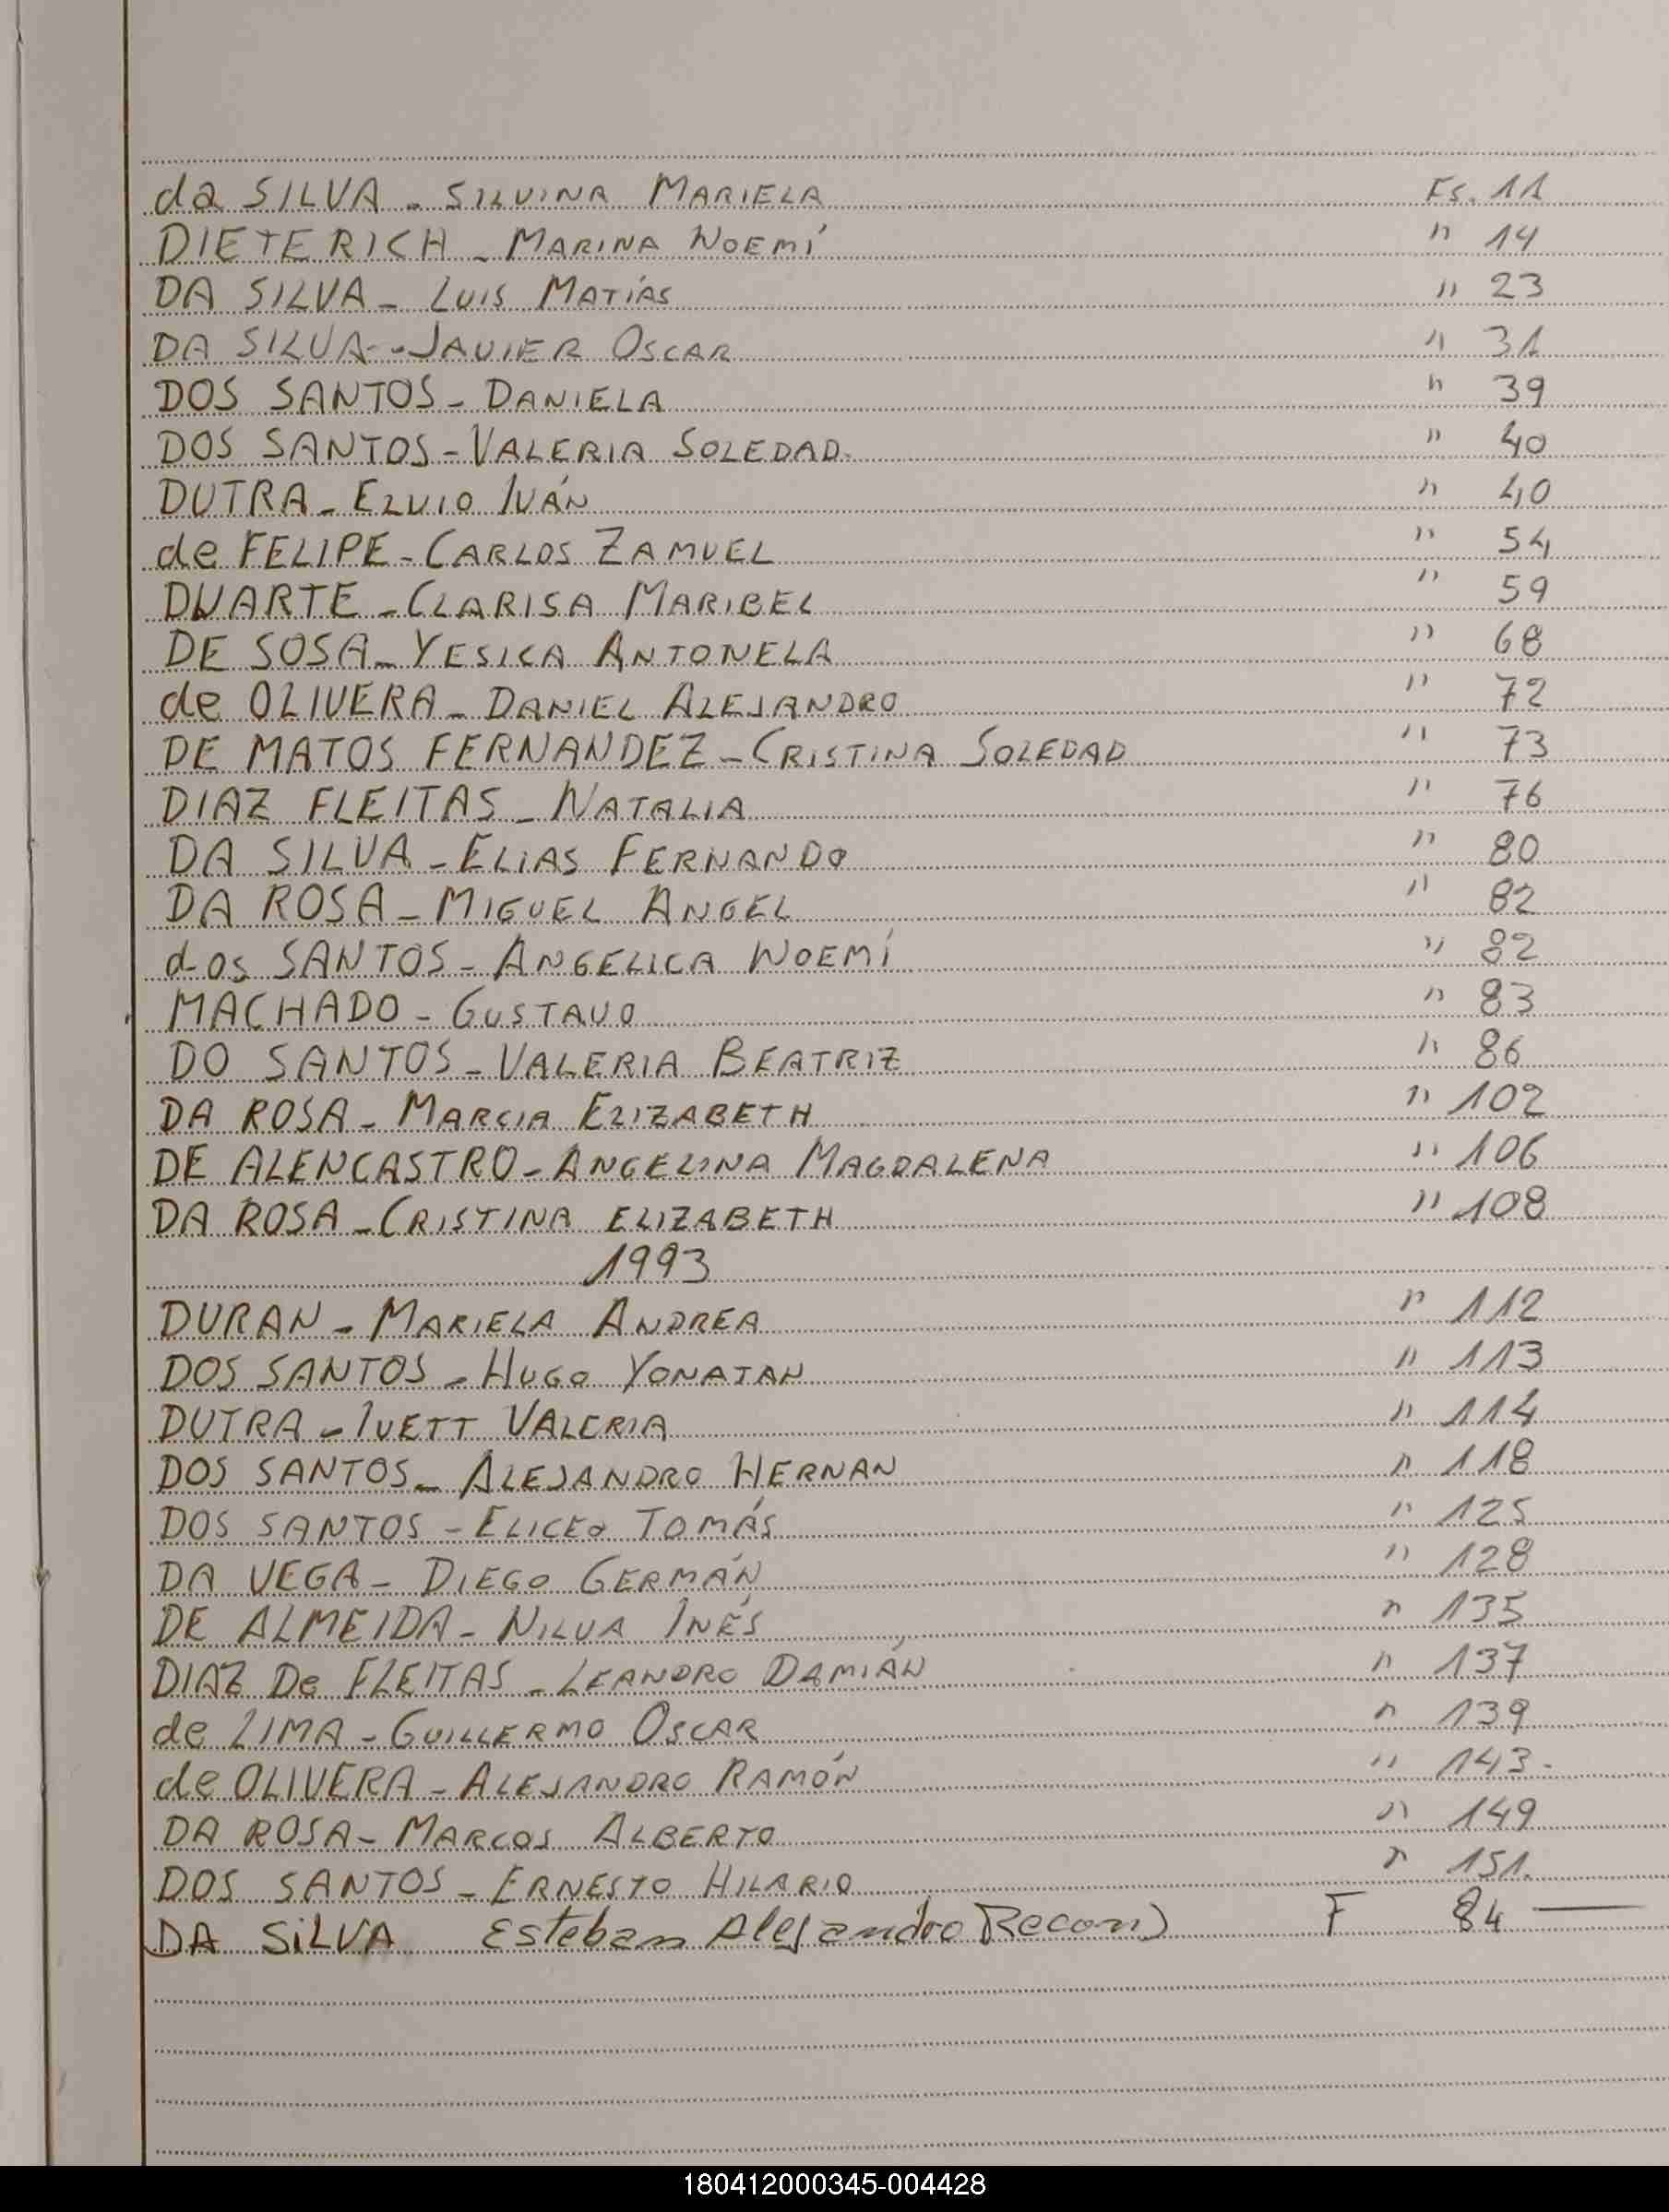 da SILVA - SILVINA MARIELA Fs. 11
DIETERICH - MARINA NOEMÍ " 14
DA SILVA - LUIS MATÍAS " 23
DA SILVA - JAVIER OSCAR " 31
DOS SANTOS - DANIELA " 39
DOS SANTOS - VALERIA SOLEDAD " 40
DUTRA - ELVIO IVÁN " 40
de FELIPE - CARLOS ZAMUEL " 54
DUARTE - CLARISA MARIBEL " 59
DE SOSA - YESICA ANTONELA " 68
de OLIVERA - DANIEL ALEJANDRO " 72
DE MATOS FERNANDEZ - CRISTINA SOLEDAD " 73
DIAZ FLEITAS - NATALIA " 76
DA SILVA - ELIAS FERNANDO " 80
DA ROSA - MIGUEL ANGEL " 82
dos SANTOS - ANGELICA NOEMÍ " 82
MACHADO - GUSTAVO " 83
DO SANTOS - VALERIA BEATRIZ " 86
DA ROSA - MARCIA ELIZABETH " 102
DE ALENCASTRO - ANGELINA MAGDALENA " 106
DA ROSA - CRISTINA ELIZABETH " 108
1993
DURAN - MARIELA ANDREA " 112
DOS SANTOS - HUGO YONATAN " 113
DUTRA - IVETT VALERIA " 114
DOS SANTOS - ALEJANDRO HERNAN " 118
DOS SANTOS - ELICEO TOMÁS " 125
DA VEGA - DIEGO GERMÁN " 128
DE ALMEIDA - NILVA INÉS " 135
DIAZ De FLEITAS - LEANDRO DAMIÁN " 137
de LIMA - GUILLERMO OSCAR " 139
de OLIVERA - ALEJANDRO RAMÓN " 143-
DA ROSA - MARCOS ALBERTO " 149
DOS SANTOS - ERNESTO HILARIO " 151.
DA SILVA Esteban Alejandro Recon) F 84 —
180412000345-004428